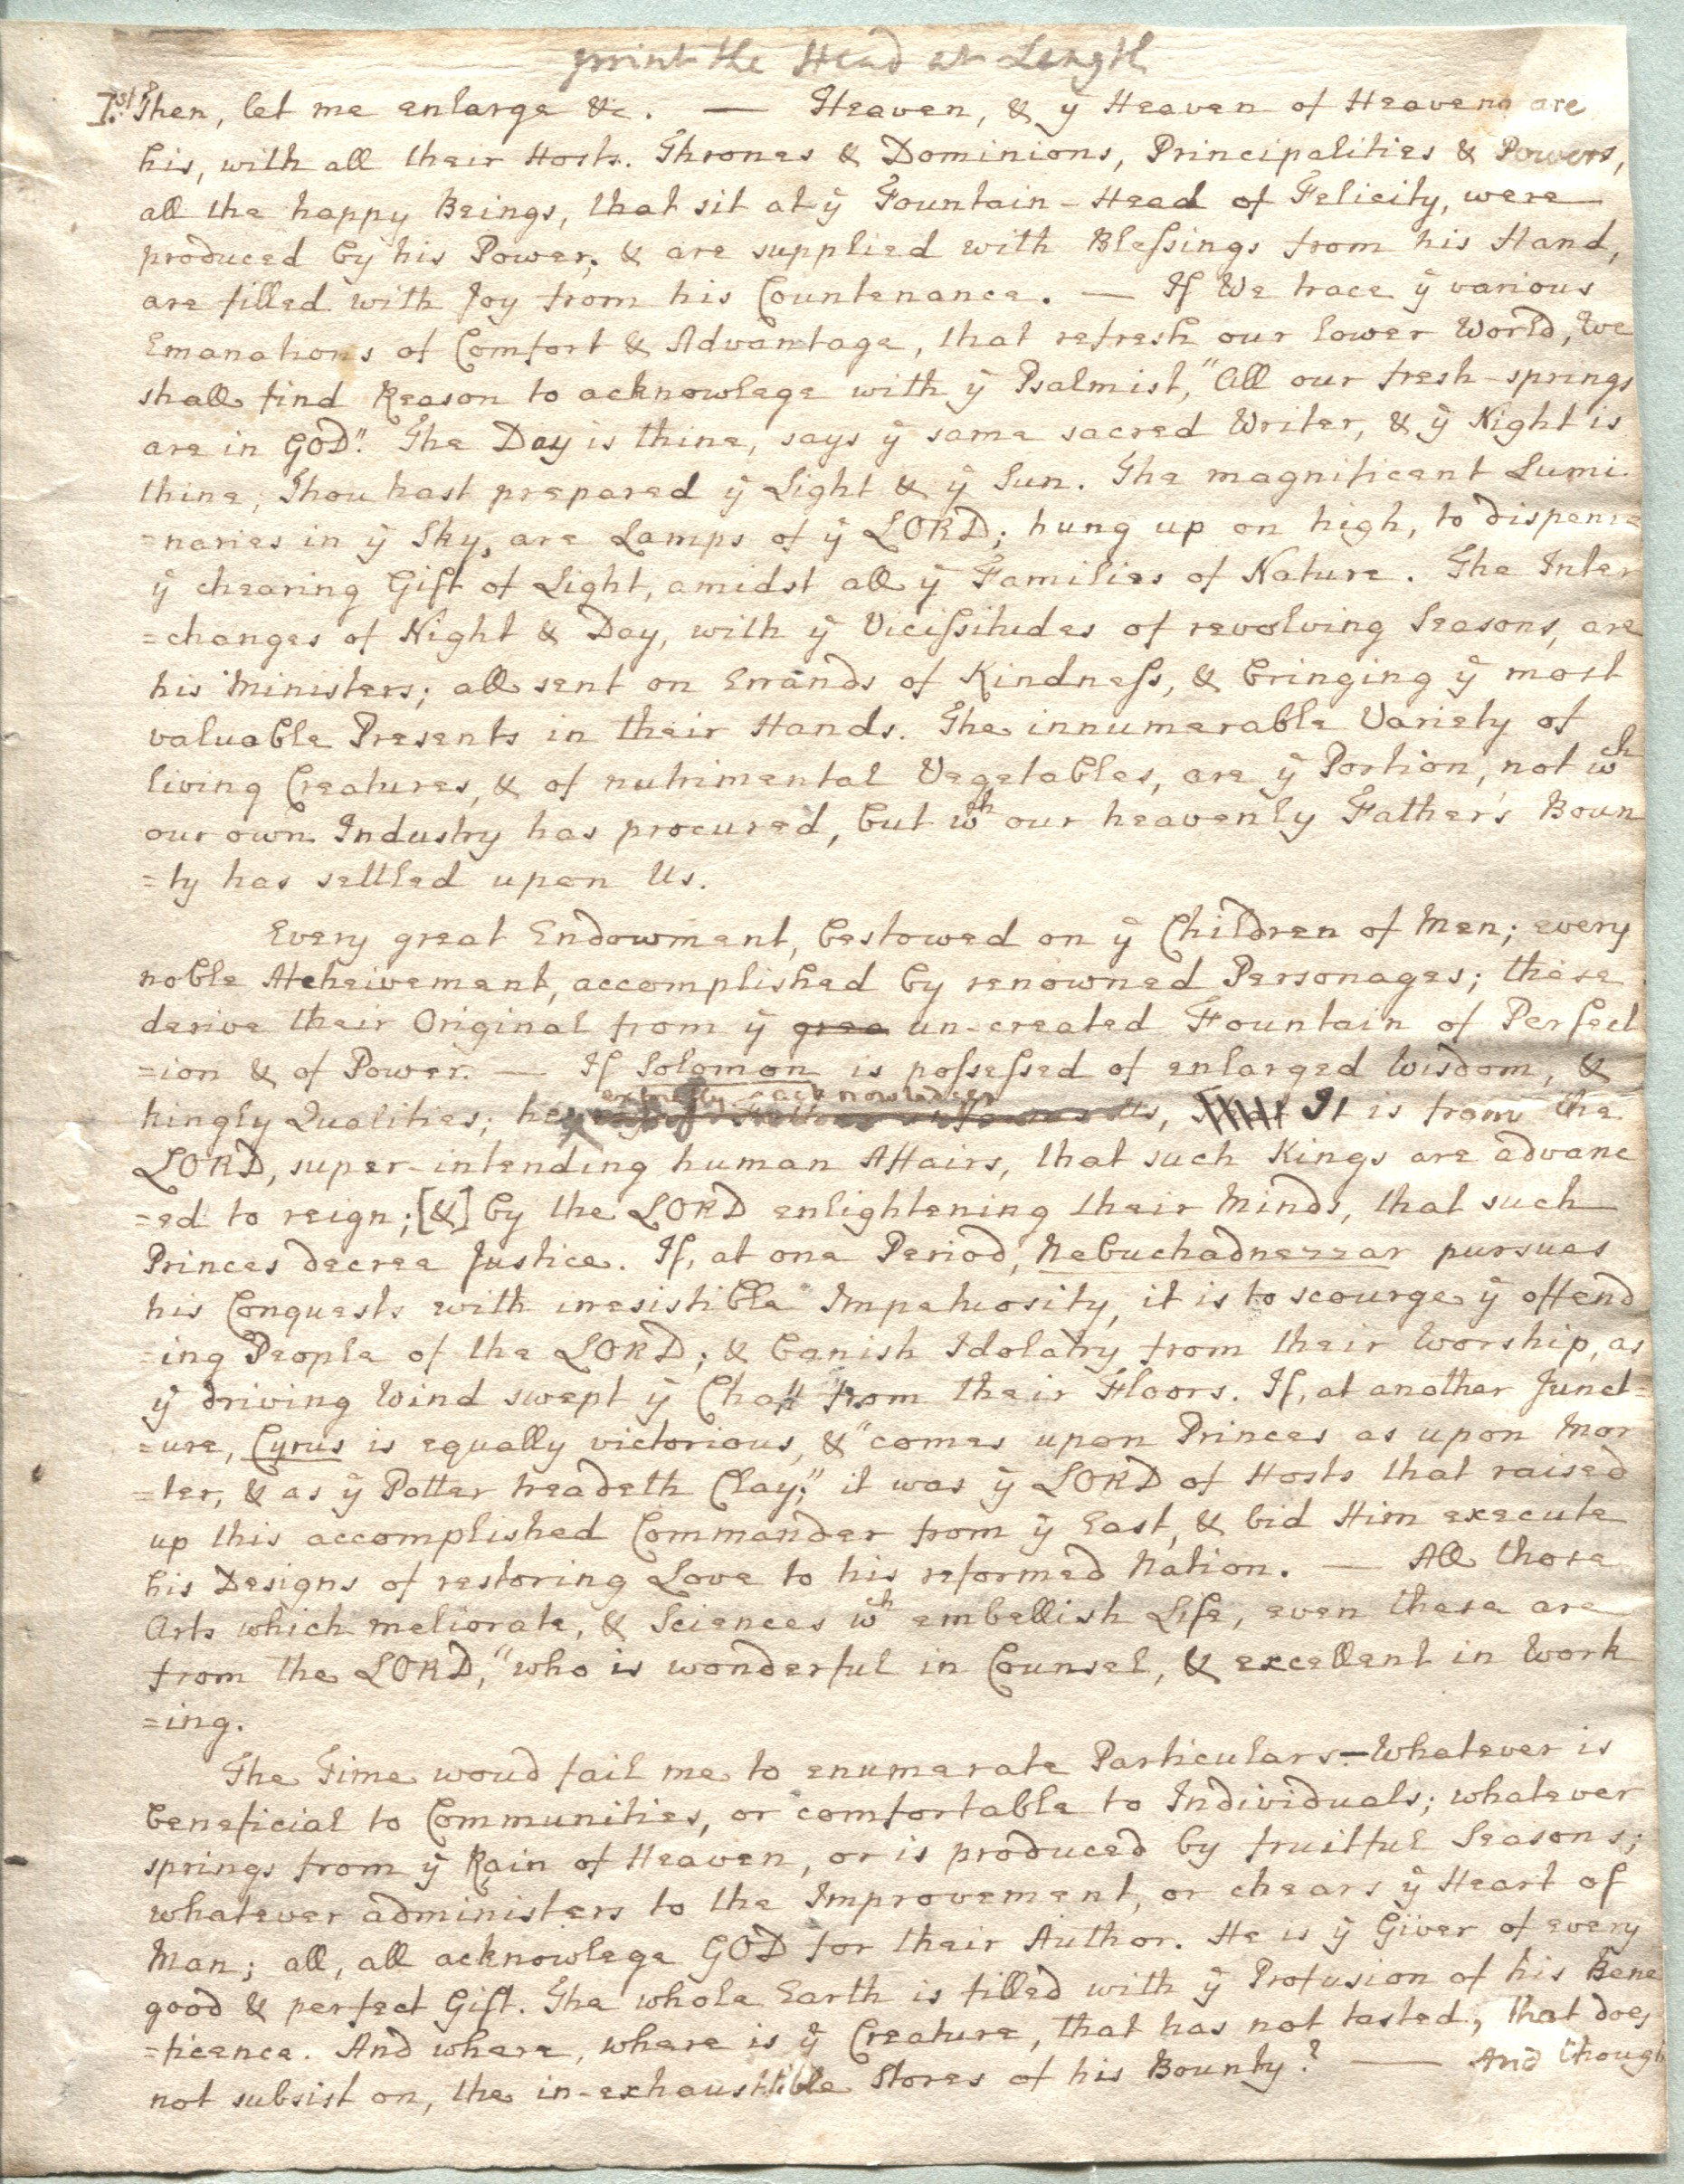 print the Head at Length
I.st Then, let me enlarge &c. — Heaven, & ỹ Heaven of Heavens are
his, with all their Hosts. Thrones & Dominions, Principalities & Powers,
all the happy Beings, that sit at ỹ Fountain-Head of Felicity, were
produced by his Power; & are supplied with Blessings from his Hand,
are filled with Joy from his Countenance. — If We trace ỹ various
Emanations of Comfort & Advantage, that refresh our lower World, We
shall find Reason to acknowlege with ỹ Psalmist, "All our fresh-springs
are in GOD". The Day is thine, says ỹ same sacred Writer, & ỹ Night is
thine; Thou hast prepared ỹ Light & ỹ Sun. The magnificent Lumi-
=naries in ỹ Sky, are Lamps of ỹ LORD; hung up on high, to dispense
ỹ chearing Gift of Light, amidst all ỹ Families of Nature. The Inter
=changes of Night & Day, with ỹ Vicissitudes of revolving Seasons, are
his Ministers; all sent on Errands of Kindness, & bringing ỹ most
valuable Presents in their Hands. The innumerable Variety of
living Creatures, & of nutrimental Vegetables, are ỹ Portion, not wch
our own Industry has procured, but wch our heavenly Father's Boun
=ty has settled upon Us.
Every great Endowment, bestowed on ỹ Children of Men; every
noble Atcheivement, accomplished by renowned Personages; these
derive their Original from ỹ grea un-created Fountain of Perfect
=ion & of Power. — If Solomon is possessed of enlarged Wisdom, &
expressly acknowledges
kingly Qualities; he It is from the
LORD, super-intending human Affairs, that such Kings are advanc
=ed to reign; [&] by the LORD enlightening their Minds, that such
Princes decree Justice. If, at one Period, Nebuchadnezzar pursues
his Conquests with irresistible Impetuosity, it is to scourge ỹ offend
=ing People of the LORD; & banish Idolatry from their Worship, as
ỹ driving Wind swept ỹ Chaff from their Floors. If, at another Junct=
=ure, Cyrus is equally victorious, & "comes upon Princes as upon Mor
=ter, & as ỹ Potter treadeth Clay;" it was ỹ LORD of Hosts that raised
up this accomplished Commander from ỹ East, & bid Him execute
his Designs of restoring Love to his reformed Nation. — All those
Arts which meliorate, & Sciences wch embellish Life, even these are
from the LORD, "who is wonderful in Counsel, & excellent in Work
=ing.
The Time woud fail me to enumerate Particulars—Whatever is
beneficial to Communities, or comfortable to Individuals; whatever
springs from ỹ Rain of Heaven, or is produced by fruitful Seasons;
whatever administers to the Improvement, or chears ỹ Heart of
Man; all, all acknowlege GOD for their Author. He is ỹ Giver of every
good & perfect Gift. The whole Earth is filled with ỹ Profusion of his Bene
=ficence. And where, where is ỹ Creature, that has not tasted, that does
not subsist on, the in-exhaustible Stores of his Bounty? — And though